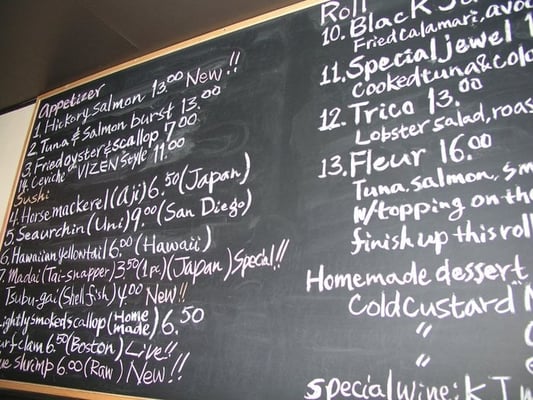 Appetizer
1. Hickory salmon 13.00 New!!
2. Tuna & Salmon burst 13.00
3. Fried oyster & scallop 7.00
14. Ceviche VIZEN style 11.00
Sushi
4. Horse mackerel (Aji) 6.50 (Japan)
5. Sea urchin (Uni) 9.00 (San Diego)
6. Hawaiian yellowtail 6.00 (Hawaii)
7. Madai (Tai-snapper) 3.50 (1p.) (Japan) Special!!
Tsubu-gai (Shellfish) 4.00 New!!
lightly smoked scallop (Home made) 6.50
urf clam 6.50 (Boston) Live!!
ue shrimp 6.00 (Raw) New!!
Roll
10. Black
Fried calamari, avoc
11. Special jewel 1
Cooked tuna & colo
12. Trico 13.00
Lobster salad, roas
13. Fleur 16.00
Tuna, salmon, sm
w/topping on the
finish up this roll
Homemade dessert
Cold custard
"
"
Special wine: